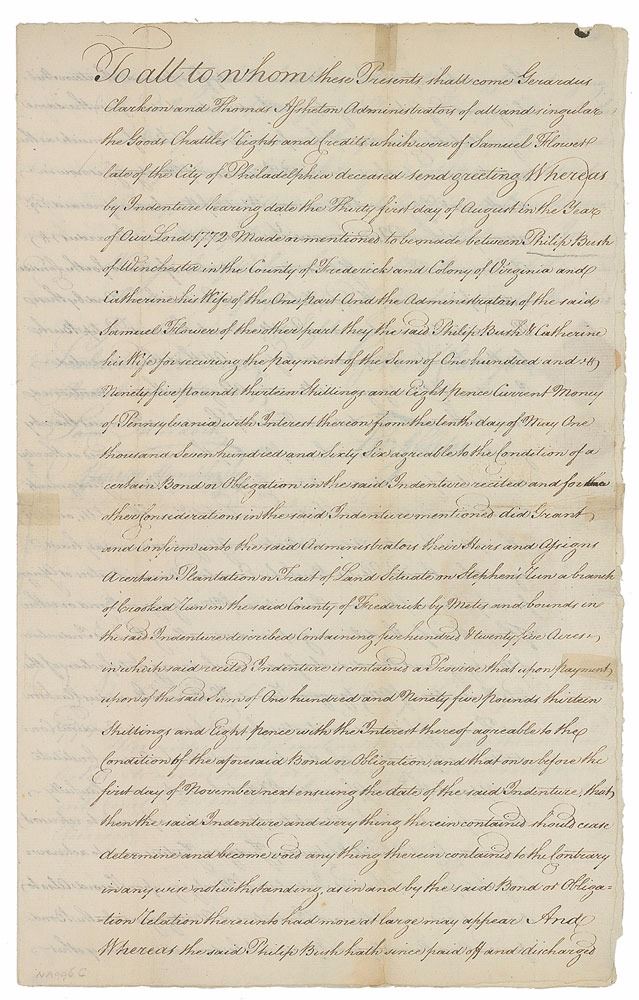 To all to whom these Presents shall come Gerardus
Clarkson and Thomas Assheton Administrators of all and singular
the Goods Chattles Rights and Credits which were of Samuel Flower
late of the City of Philadelphia deceased send greeting Whereas
by Indenture bearing date the Thirty first day of August in the Year
of Our Lord 1772 Made or mentioned to be made between Philip Bush
of Winchester in the County of Frederick and Colony of Virginia and
Catherine his Wife of the One part And the Administrators of the said
Samuel Flower of the other part they the said Philip Bush & Catherine
his Wife for securing the payment of the Sum of One hundred and
Ninety five Pounds thirteen Shillings and Eight pence Current Money
of Pennsylvania with Interest thereon from the tenth day of May One
thousand Seven hundred and Sixty Six agreable to the Condition of a
certain Bond or Obligation in the said Indenture recited and for the
other Considerations in the said Indenture mentioned did Grant
and Confirm unto the said Administrators their Heirs and Assigns
A certain Plantation or Tract of Land Situate on Stephen's Run a branch
of Crooked Run in the said County of Frederick by Metes and bounds in
the said Indenture described Containing five hundred & twenty five Acres,
in which said recited Indenture is contained a Proviso that upon payment
upon of the said Sum of One hundred and Ninety five pounds thirteen
Shillings and Eight pence with the Interest thereof agreable to the
Condition of the aforesaid Bond or Obligation, and that on or before the
first day of November next ensuing the date of the said Indenture, that
then the said Indenture and every thing therein contained should cease
determine and become void any thing therein contained to the Contrary
in any wise notwithstanding, as in and by the said Bond or Obliga=
tion Relation thereunto had more at large may appear And
Whereas the said Philip Bush hath since paid off and discharged
NA996 C